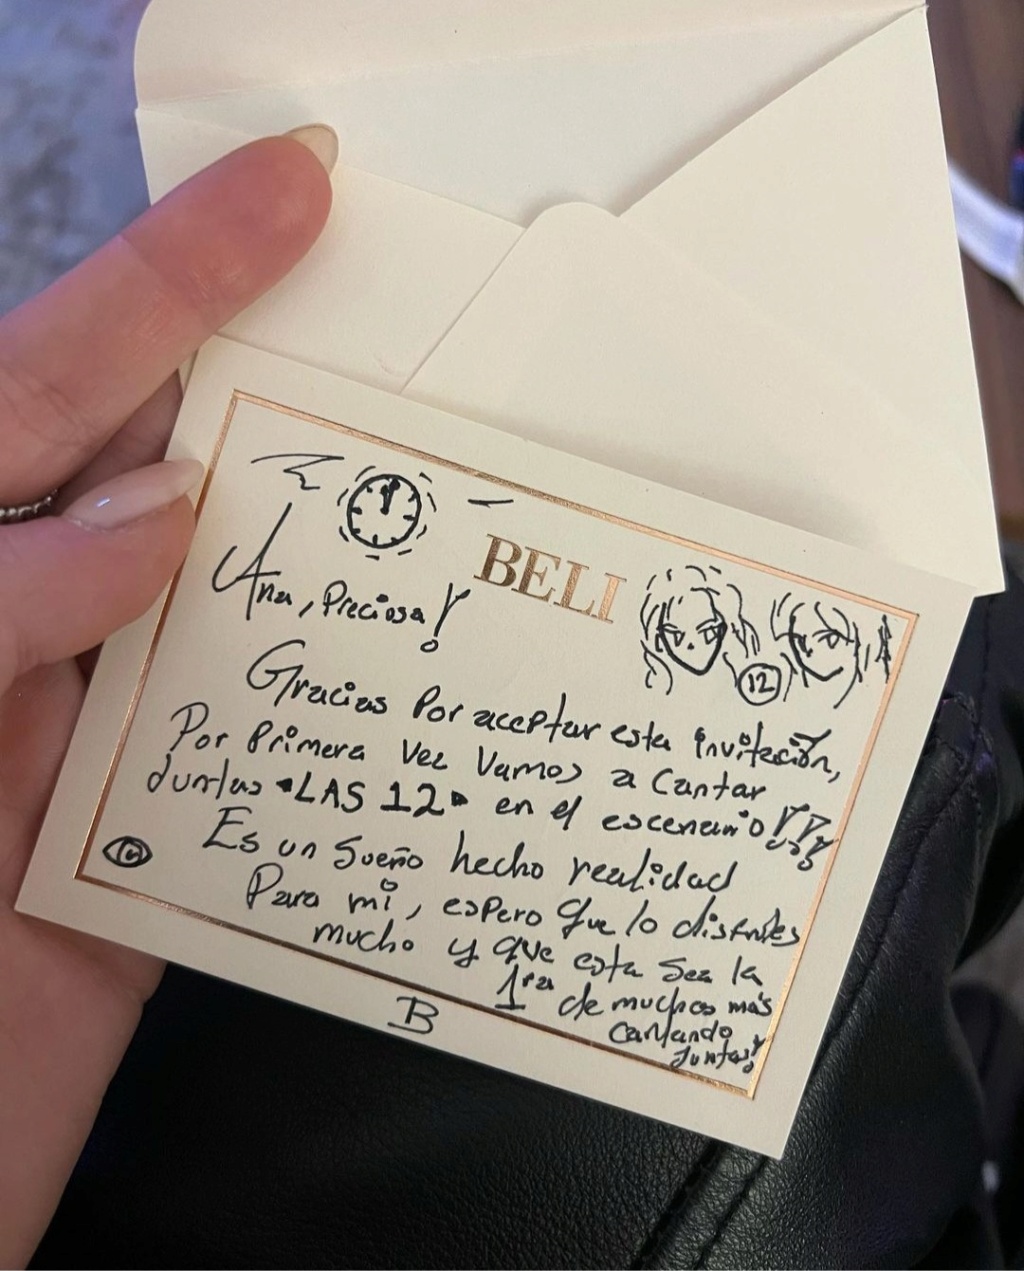 BELI
Ana, Preciosa!
Gracias Por aceptar esta invitación,
Por Primera vez Vamos a Cantar
Juntas "LAS 12" en el escenario!!!
Es un Sueño hecho realidad
Para mi, espero que lo disfrutes
mucho y que esta sea la
1ra de muchas más
cantando
Juntas!
B
12